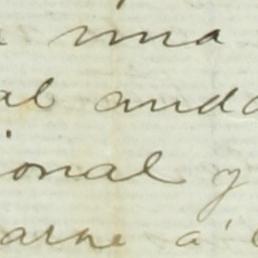 una
al anda
ional y
arne á